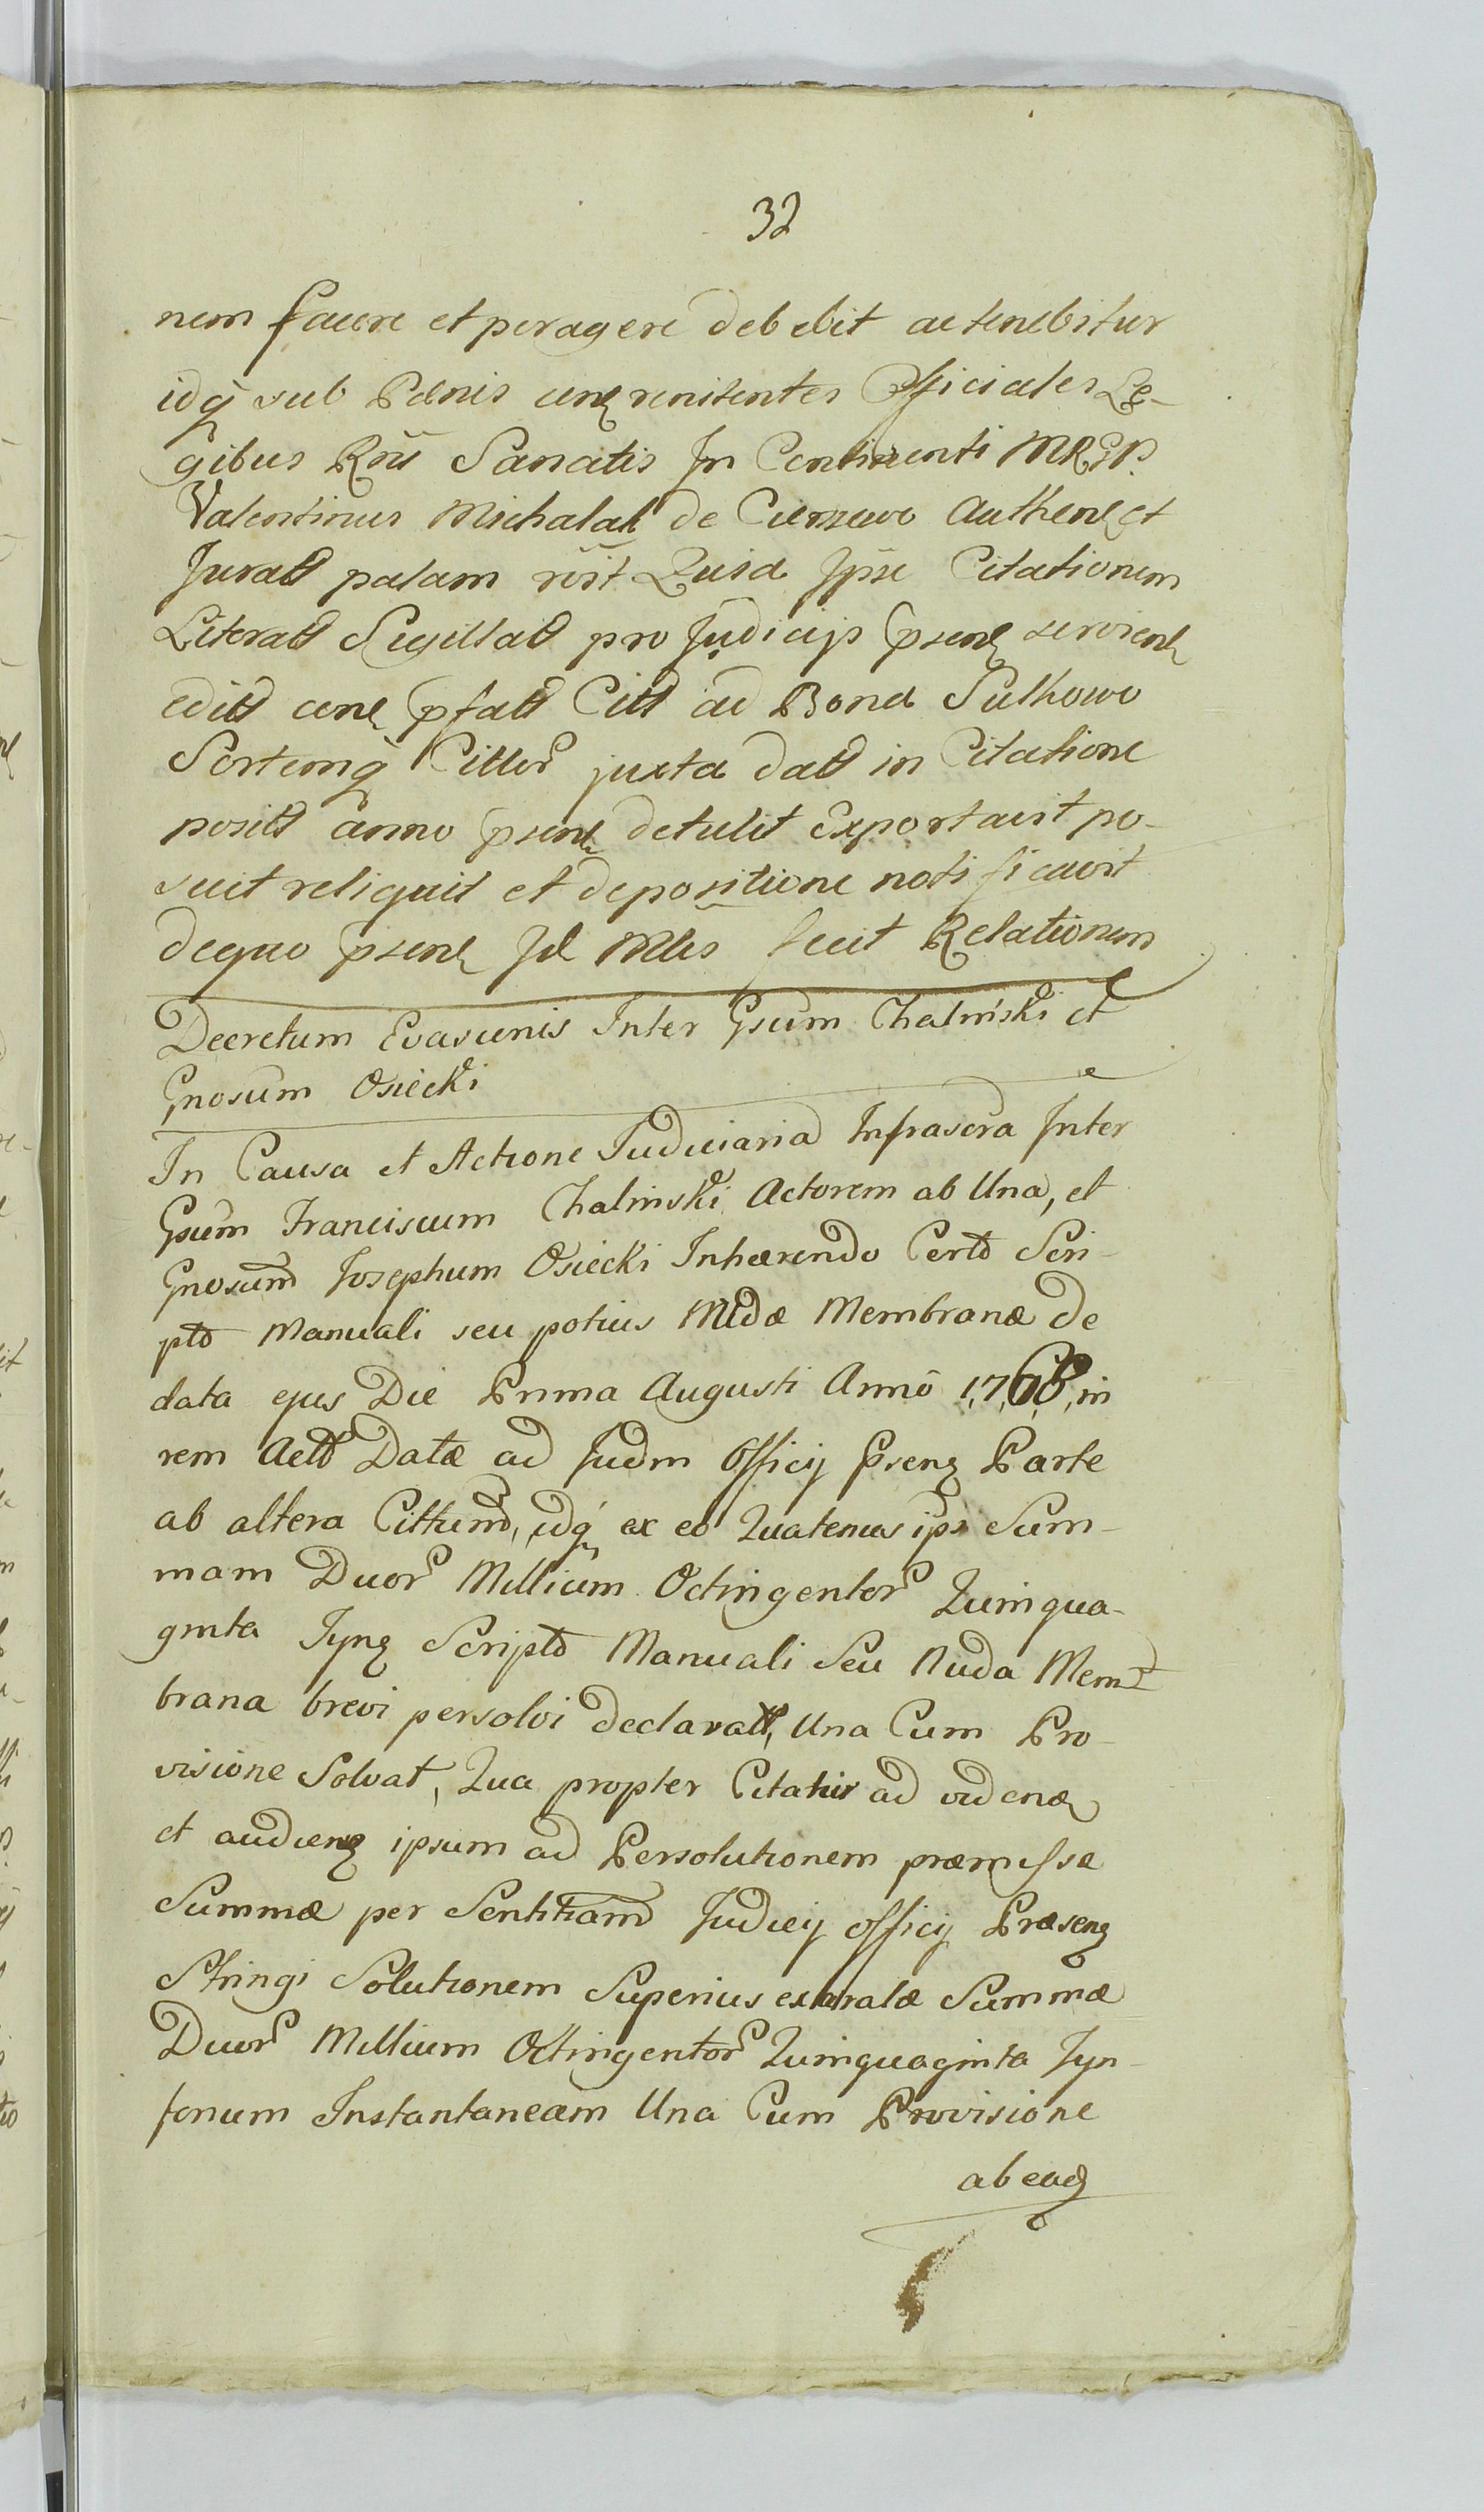 32
nem facere et peragere debebit ac tenebitur
idq sub Pænis conz renitentes Officiales Le-
gibus Rñi Sancitis In Continenti MRGP.
Valentinus Michalak de Cienzewo Authene et
Juratt palam rõit Quia Ipse Citationem
Literatt Sigillatt pro Judicijs psenz serviene
editt cone pfatt Citt ad Bona Sulkowo
Sortemq Cittor juxta datt in Citatione
positt anno psene detulit Exportavit po-
suit reliquit et depositione notificavit
dequo psene Jd Mlis fecit Relationem
Decretum Evasionis Inter Gsum Chalinski et
Gnosum Osiecki
In Causa et Actione Judiciaria Infrascra Inter
Gsum Franciscum Chalinski Actorem ab Una, et
Gnosum Josephum Osiecki Inhærendo Certo Scri-
pto Manuali seu potius Nudæ Membranæ de
data ejus Die Prima Augusti Anno 1768, in
rem Actt Datæ ad Judm Officij Psenz Parte
ab altera Cittum, idq ex eo Quatenus ipse Sum-
mam Duor Millium Octingentor Quinqua-
ginta Tynz Scripto Manuali Seu Nuda Mem-
brana brevi persolvi declaratt, Una Cum Pro-
visione Solvat, Qua propter Citatur ad videnz
et audienz ipsum ad Persolutionem præmissæ
Summæ per Sententiam Judicij officij Præsenz
Stringi Solutionem Superius exaratæ Summæ
Duor Millium Octingentor Quinquaginta Tyn-
fonum Instantaneam Una Cum Provisione
ab eadz